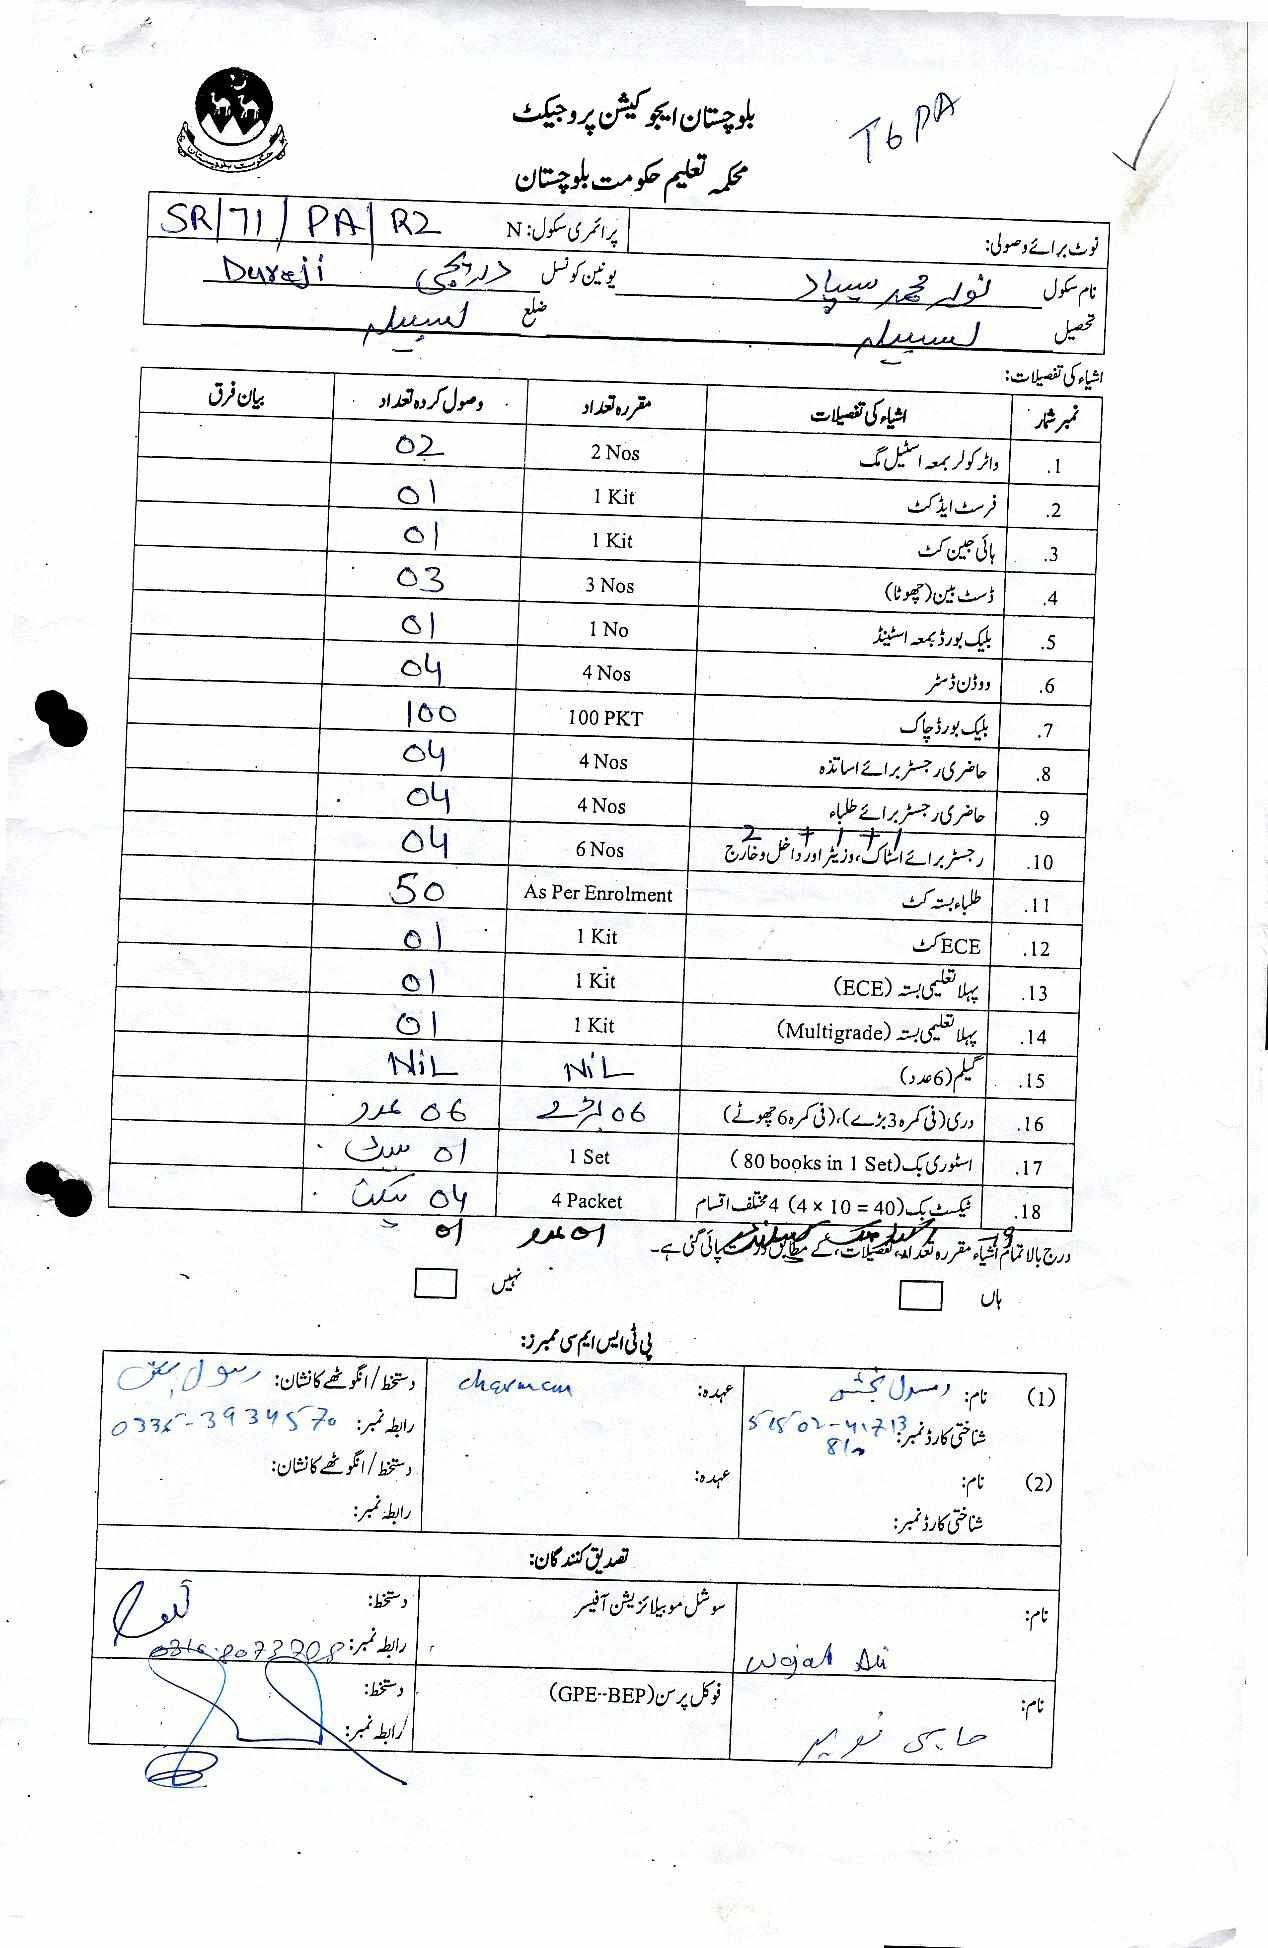 بلوچستان ایجوکیشن پروجیکٹ
T6PA
محکمہ تعلیم حکومت بلوچستان
حکومت بلوچستان
نوٹ برائے وصولی: پرائمری سکول: N SR/71/PA/R2
نام سکول نور محمد سیپاد یونین کونسل دریجی Dureji
تحصیل لسبیلہ ضلع لسبیلہ
اشیاء کی تفصیلات:
نمبر شمار اشیاء کی تفصیلات مقررہ تعداد وصول کردہ تعداد بیان فرق
1. واٹر کولر بمعہ اسٹیل مگ 2 Nos 02
2. فرسٹ ایڈ کٹ 1 Kit 01
3. ہائی جین کٹ 1 Kit 01
4. ڈسٹ بین (چھوٹا) 3 Nos 03
5. بلیک بورڈ بمعہ اسٹینڈ 1 No 01
6. ووڈن ڈسٹر 4 Nos 04
7. بلیک بورڈ چاک 100 PKT 100
8. حاضری رجسٹر برائے اساتذہ 4 Nos 04
9. حاضری رجسٹر برائے طلباء 4 Nos 04
2 + 1 + 1
10. رجسٹر برائے اسٹاک، وزیٹر اور داخل و خارج 6 Nos 04
11. طلباء بستہ کٹ As Per Enrolment 50
12. ECE کٹ 1 Kit 01
13. پہلا تعلیمی بستہ (ECE) 1 Kit 01
14. پہلا تعلیمی بستہ (Multigrade) 1 Kit 01
15. گیلم (6 عدد) NiL NiL
16. دری (فی کمرہ 3 بڑے)، (فی کمرہ 6 چھوٹے) 06 بڑے 06 عدد
17. اسٹوری بک (80 books in 1 Set) 1 Set 01 سیٹ
18. ٹیکسٹ بک (4 x 10 = 40) 4 مختلف اقسام 4 Packet 04 پیکٹ
01 عدد 01
درج بالا تمام اشیاء مقررہ تعداد، تفصیلات، کے مطابق درست پائی گئی ہے۔
ہاں نہیں
پی ٹی ایس ایم سی ممبرز:
(1) نام: رسول بخش عہدہ: charmam دستخط/انگوٹھے کا نشان: رسول بخش
شناختی کارڈ نمبر: رابطہ نمبر: 0335-3934570
(2) نام: عہدہ: دستخط/انگوٹھے کا نشان:
شناختی کارڈ نمبر: رابطہ نمبر:
تصدیق کنندگان:
نام: Wajat Ali سوشل موبیلائزیشن آفیسر دستخط:
رابطہ نمبر:
نام: فوکل پرسن (GPE--BEP) دستخط:
رابطہ نمبر: